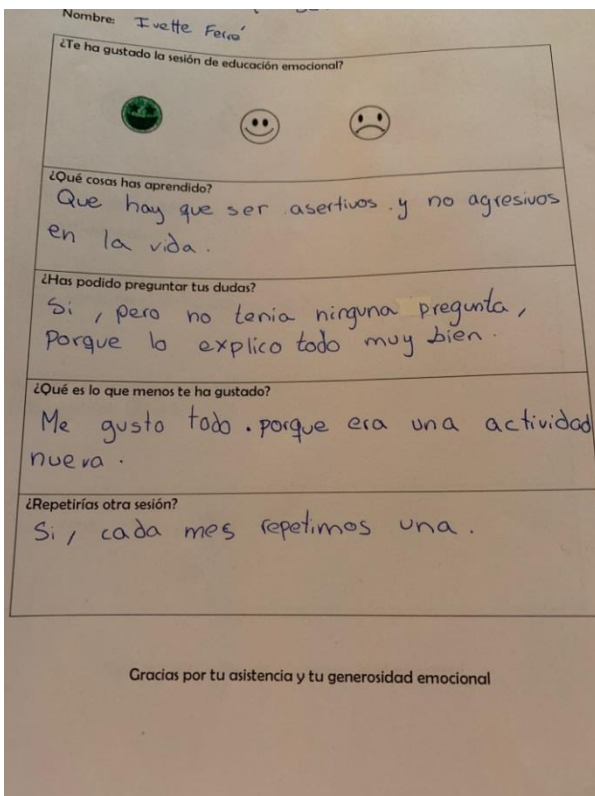 Nombre: Ivette Ferré
¿Te ha gustado la sesión de educación emocional?
¿Qué cosas has aprendido?
Que hay que ser asertivos y no agresivos
en la vida.
¿Has podido preguntar tus dudas?
Si, pero no tenia ninguna pregunta,
porque lo explico todo muy bien.
¿Qué es lo que menos te ha gustado?
Me gusto todo. porque era una actividad
nueva.
¿Repetirías otra sesión?
Si, cada mes repetimos una.
Gracias por tu asistencia y tu generosidad emocional